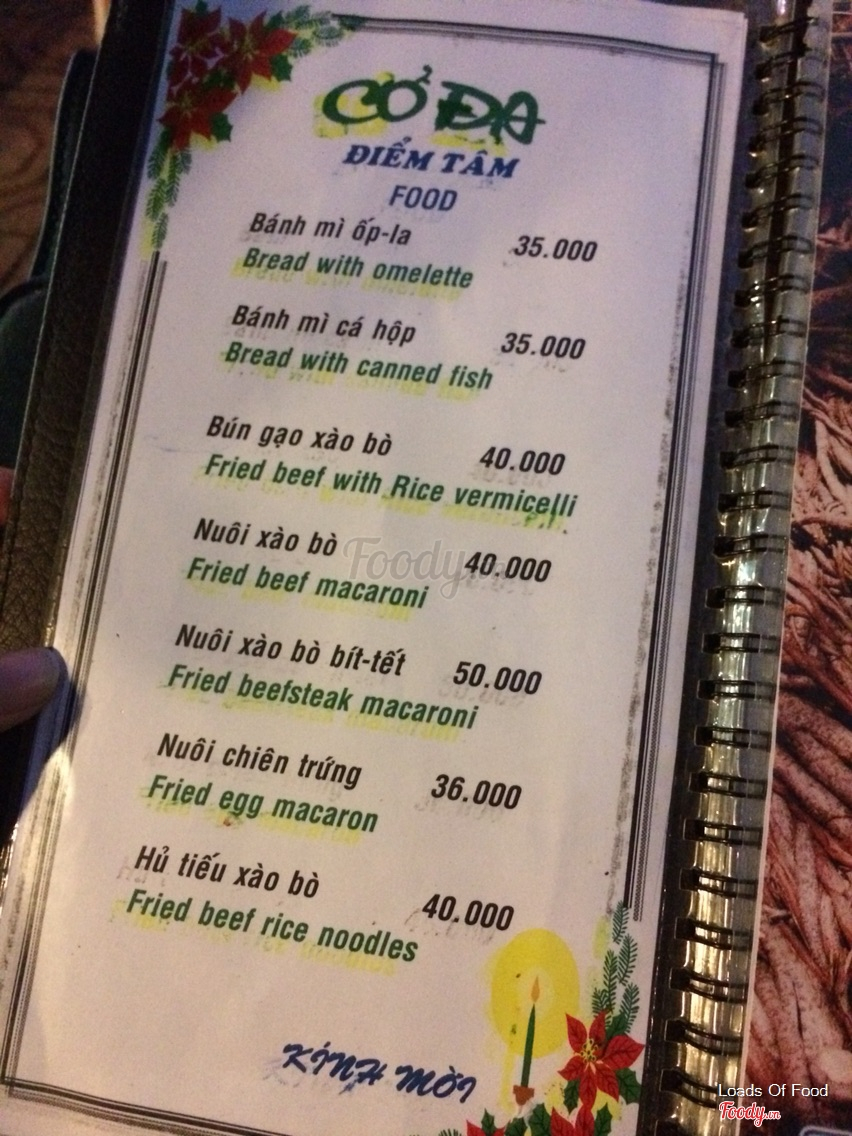 CỔ ĐA
ĐIỂM TÂM
FOOD
Bánh mì ốp-la 35.000
Bread with omelette
Bánh mì cá hộp 35.000
Bread with canned fish
Bún gạo xào bò 40.000
Fried beef with Rice vermicelli
Nuôi xào bò 40.000
Fried beef macaroni
Nuôi xào bò bít-tết 50.000
Fried beefsteak macaroni
Nuôi chiên trứng 36.000
Fried egg macaron
Hủ tiếu xào bò 40.000
Fried beef rice noodles
KÍNH MỜI
Foody.vn
Loads Of Food
Foody.vn